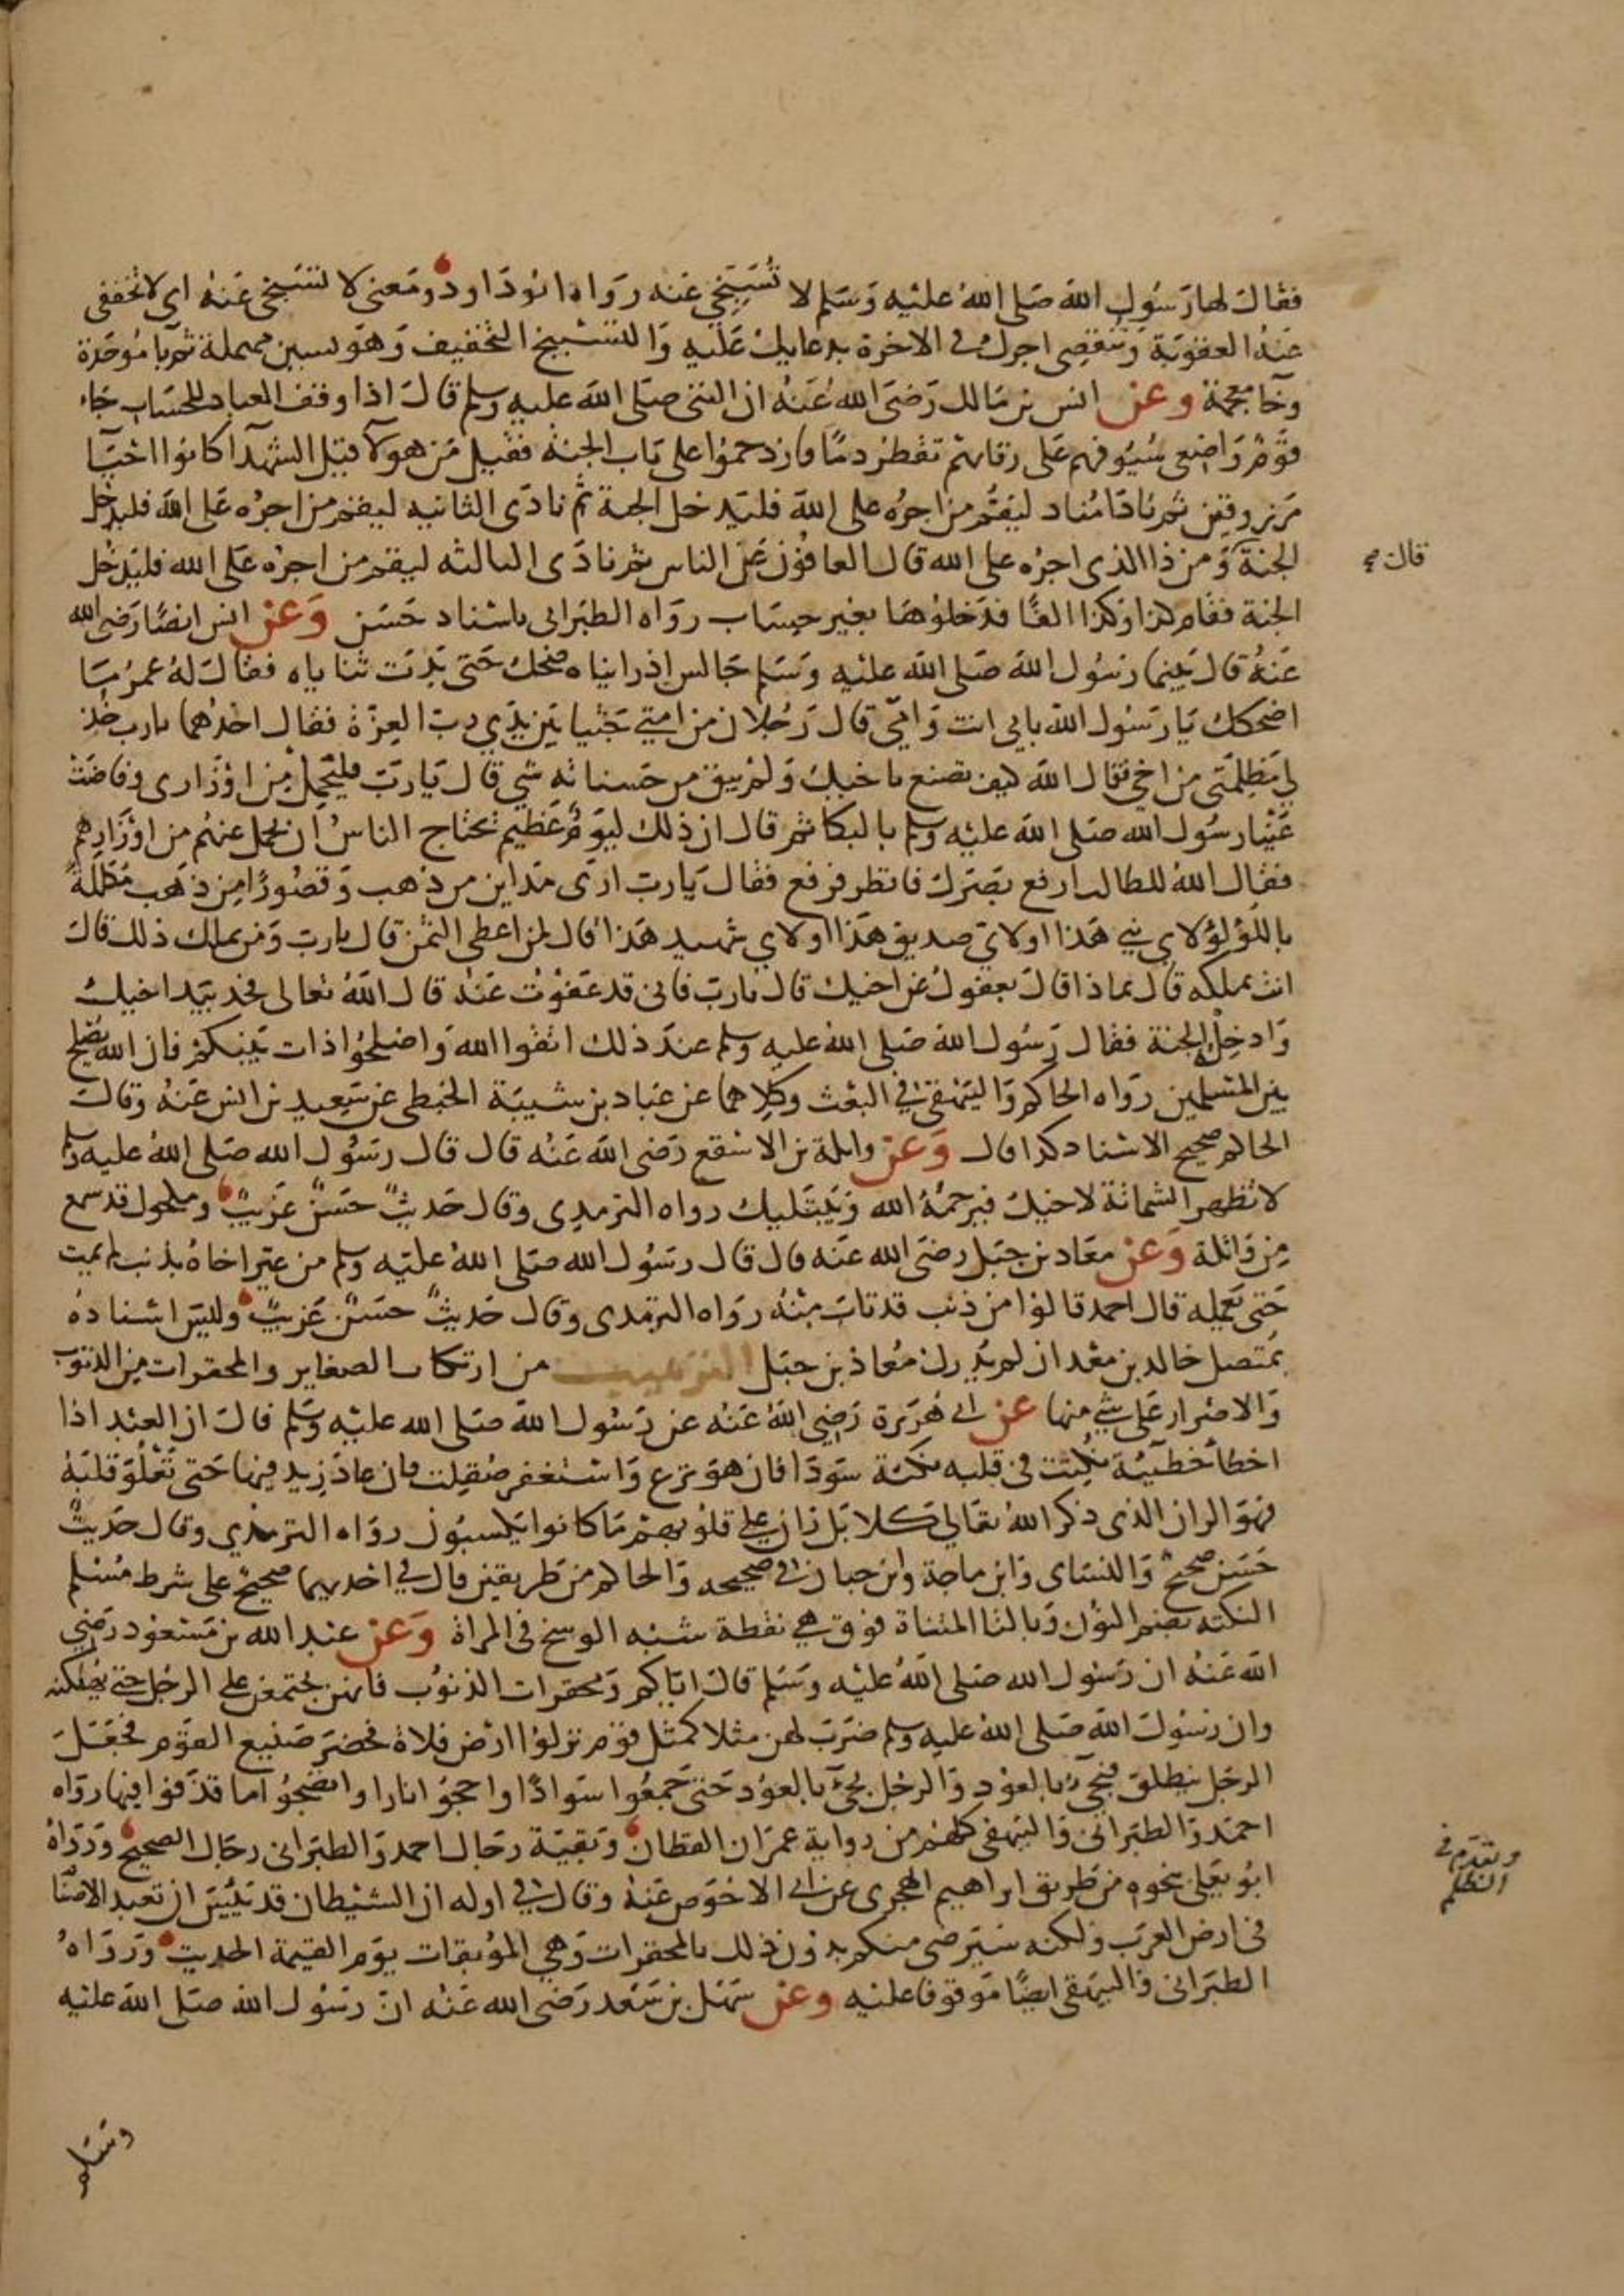 فقال لها رسول الله صلى الله عليه وسلم لا تسبخي عنه رواه ابو داود ومعنى لا تسبخي عنه اي لا تخففي
عنه العقوبة وتنقصي اجرك في الاخرة بدعايك عليه والتسبيخ التخفيف وهو بسين مهملة ثم با موحدة
وخا معجمة وعن انس بن مالك رضي الله عنه ان النبي صلى الله عليه وسلم قال اذا وقف العباد للحساب جاء
قوم واضعي سيوفهم على رقابهم تقطر دما فازدحموا على باب الجنة فقيل من هولآ قيل الشهدآ كانوا احيآ
مرزوقين ثم نادا مناد ليقم من اجره على الله فليدخل الجنة ثم نادى الثانيه ليقم من اجره على الله فليدخل
الجنة ومن ذا الذي اجره على الله قال العافون عن الناس ثم نادى الثالثه ليقم من اجره على الله فليدخل
قال صح
الجنة فقام كذا وكذا الفا فدخلوها بغير حساب رواه الطبراني باسناد حسن وعن انس ايضا رضي الله
عنه قال بينما رسول الله صلى الله عليه وسلم جالس اذ رايناه ضحك حتى بدت ثناياه فقال له عمر ما
اضحكك يا رسول الله بابي انت وامي قال رجلان من امتي جثيا بين يدي رب العزة فقال احدهما يارب خذ
لي مظلمتي من اخي فقال الله كيف تصنع باخيك ولم يبق من حسناته شي قال يا رب فليتحمل من اوزاري وفاضت
عينا رسول الله صلى الله عليه وسلم بالبكا ثم قال ان ذلك ليوم عظيم تحتاج الناس ان يحمل عنهم من اوزارهم
فقال الله للطالب ارفع بصرك فانظر فرفع فقال يا رب ارى مداين من ذهب وقصورا من ذهب مكللة
باللؤلؤ لاي نبي هذا او لاي صديق هذا او لاي شهيد هذا قال لمن اعطى الثمن قال يارب ومن يملك ذلك قال
انت تملكه قال بماذا قال بعفوك عن اخيك قال يارب فاني قد عفوت عنه قال الله تعالى فخذ بيد اخيك
وادخل الجنة فقال رسول الله صلى الله عليه وسلم عند ذلك اتقوا الله واصلحوا ذات بينكم فان الله يصلح
بين المسلمين رواه الحاكم والبيهقي في البعث وكلاهما عن عباد بن شيبة الحبطي عن سعيد بن انس عنه وقال
الحاكم صحيح الاسناد كذا قال وعن واثلة بن الاسقع رضي الله عنه قال قال رسول الله صلى الله عليه وسلم
لا تظهر الشماتة لاخيك فيرحمه الله ويبتليك رواه الترمذي وقال حديث حسن غريب ومكحول قد سمع
من واثلة وعن معاذ بن جبل رضي الله عنه قال قال رسول الله صلى الله عليه وسلم من عير اخاه بذنب لم يمت
حتى يعمله قال احمد قالوا من ذنب قد تاب منه رواه الترمذي وقال حديث حسن غريب وليس اسناده
بمتصل خالد بن معدان لم يدرك معاذ بن جبل الترهيب من ارتكاب الصغاير والمحقرات من الذنوب
والاصرار على شي منها عن ابي هريرة رضي الله عنه عن رسول الله صلى الله عليه وسلم قال ان العبد اذا
اخطا خطيئة نكتت في قلبه نكتة سودا فان هو نزع واستغفر صقلت فان عاد زيد فيها حتى تعلو قلبه
فهو الران الذي ذكر الله تعالى كلا بل ران على قلوبهم ما كانوا يكسبون رواه الترمذي وقال حديث
حسن صحيح والنساى وابن ماجة وابن حبان في صحيحه والحاكم من طريقين قال في احديهما صحيح على شرط مسلم
النكته بضم النون وبالتا المثناة فوق هي نقطة شبه الوسخ في المراة وعن عبد الله بن مسعود رضي
الله عنه ان رسول الله صلى الله عليه وسلم قال اياكم ومحقرات الذنوب فانهن يجتمعن على الرجل حتى يهلكنه
وان رسول الله صلى الله عليه وسلم ضرب لهن مثلا كمثل قوم نزلوا ارض فلاة فحضر صنيع القوم فجعل
الرجل ينطلق فيجيء بالعود والرجل يجيء بالعود حتى جمعوا سوادا واججوا نارا وانضجوا ما قذفوا فيها رواه
احمد والطبراني والبيهقي كلهم من رواية عمران القطان وبقية رجال احمد والطبراني رجال الصحيح ورواه
ابو يعلى بنحوه من طريق ابراهيم الهجري عن ابي الاحوص عنه وقال في اوله ان الشيطان قد يئيس ان تعبد الاصنا
وتقدم في
الظلم
في ارض العرب ولكنه سيرضى منكم بدون ذلك بالمحقرات وهي الموبقات يوم القيمة الحديث ورواه
الطبراني والبيهقي ايضا موقوفا عليه وعن سهل بن سعد رضي الله عنه ان رسول الله صلى الله عليه
وسلم